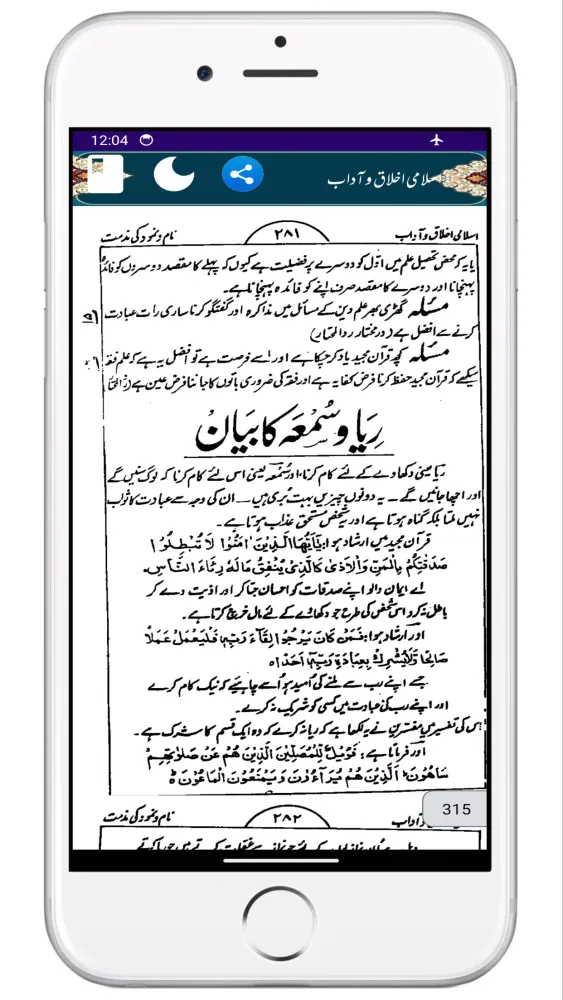 12:04
اسلامی اخلاق و آداب
اسلامی اخلاق و آداب ۲۸۱ نام و نمود کی مذمت
یا یہ کہ محض تحصیل علم میں اوّل کو دوسرے پر فضیلت ہے کیوں کہ پہلے کا مقصد دوسروں کو فائدہ
پہنچانا اور دوسرے کا مقصد صرف اپنے کو فائدہ پہنچانا ہے۔
مسئلہ گھڑی بھر علم دین کے مسائل میں مذاکرہ اور گفتگو کرنا ساری رات عبادت
کرنے سے افضل ہے (درمختار ردالمحتار)
مسئلہ کچھ قرآن مجید یاد کر چکا ہے اور اسے فرصت ہے تو افضل یہ ہے کہ علم فقہ
سیکھے کہ قرآن مجید حفظ کرنا فرض کفایہ ہے اور فقہ کی ضروری باتوں کا جاننا فرض عین ہے
ریا و سُمعَہ کا بیان
ریا یعنی دکھاوے کے لئے کام کرنا، اور سُمعہ یعنی اس لئے کام کرنا کہ لوگ سنیں گے
اور اچھا جانیں گے۔ یہ دونوں چیزیں بہت بُری ہیں۔ ان کی وجہ سے عبادت کا ثواب
نہیں ملتا بلکہ گناہ ہوتا ہے اور یہ شخص مستحق عذاب ہوتا ہے۔
قرآن مجید میں ارشاد ہوا: یٰۤاَیُّهَا الَّذِیْنَ اٰمَنُوْا لَا تُبْطِلُوْا
صَدَقٰتِكُمْ بِالْمَنِّ وَالْاَذٰی كَالَّذِیْ یُنْفِقُ مَالَهٗ رِئَآءَ النَّاسِ۔
اے ایمان والو اپنے صدقات کو احسان جتا کر اور اذیت دے کر
باطل نہ کرو اس شخص کی طرح جو دکھاوے کے لئے مال خرچ کرتا ہے۔
اور ارشاد ہوا: فَمَنْ كَانَ یَرْجُوْا لِقَآءَ رَبِّهٖ فَلْیَعْمَلْ عَمَلًا
صَالِحًا وَّلَا یُشْرِكْ بِعِبَادَةِ رَبِّهٖۤ اَحَدًا۝
جسے اپنے رب سے ملنے کی اُمید ہو اُسے چاہیے کہ نیک کام کرے
اور اپنے رب کی عبادت میں کسی کو شریک نہ کرے۔
اس کی تفسیر میں مفسرین نے یہ لکھا ہے کہ ریا نہ کرے کہ وہ ایک قسم کا شرک ہے۔
اور فرماتا ہے: فَوَیْلٌ لِّلْمُصَلِّیْنَ الَّذِیْنَ هُمْ عَنْ صَلَاتِهِمْ
سَاهُوْنَ الَّذِیْنَ هُمْ یُرَآءُوْنَ وَیَمْنَعُوْنَ الْمَاعُوْنَ
315
و آداب ۲۸۲ نام و نمود کی مذمت